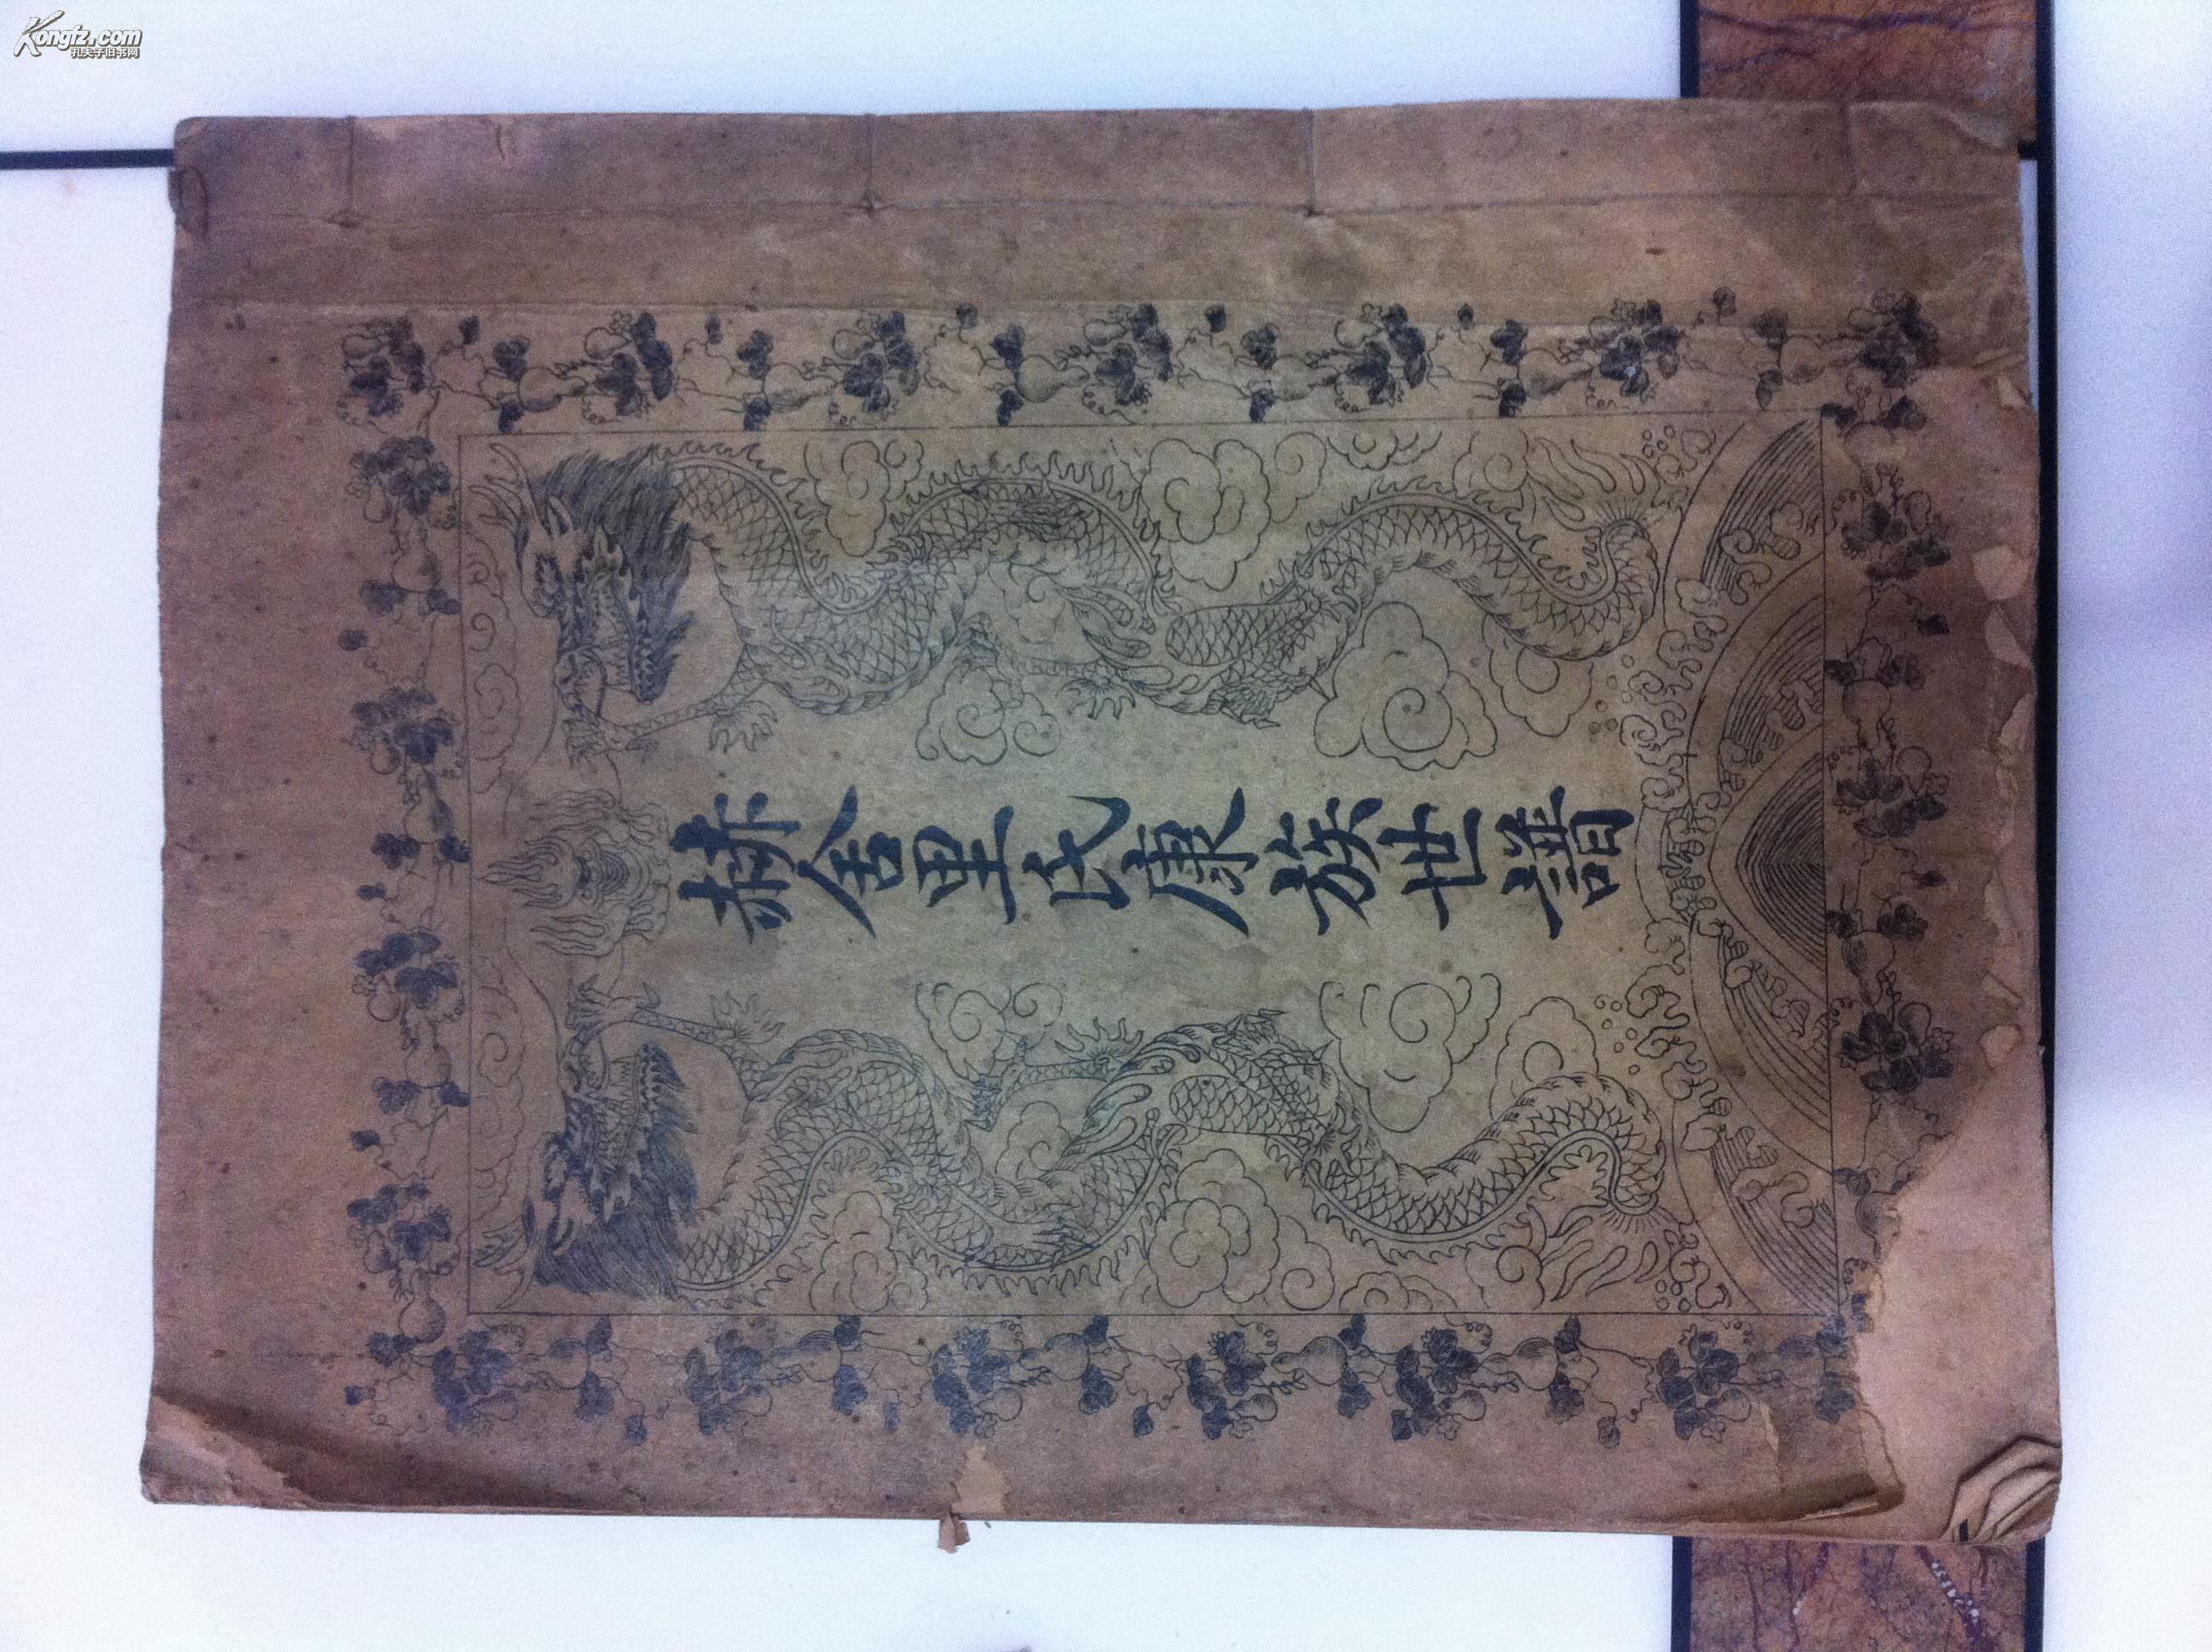 Kongfz.com
孔夫子旧书网
赫舍里氏康族世譜